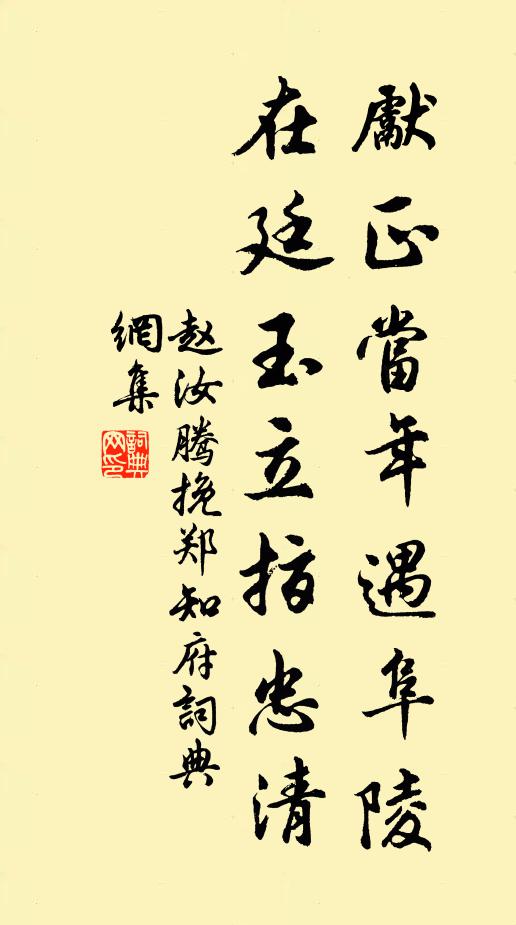 獻正當年遇阜陵
在廷玉立指忠清
赵汝腾挽郑知府詞典
網集
詞典網印